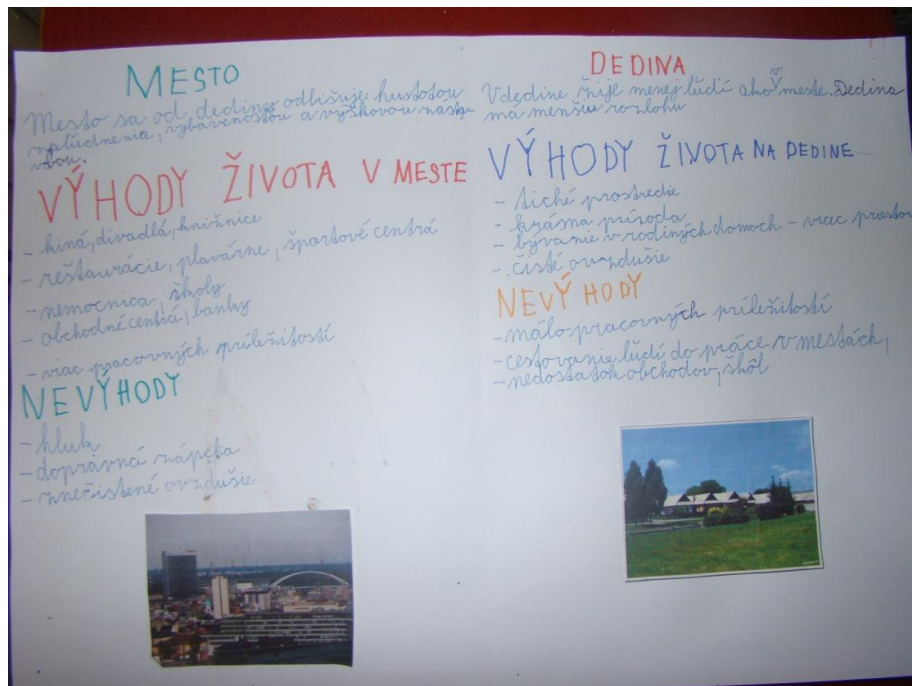 MESTO
Mesto sa od dediny odlišuje hustotou
zaľudnenia, vybavenosťou a výškovou zásta-
vbou.
VÝHODY ŽIVOTA V MESTE
- kiná, divadlá, knižnice
- reštaurácie, plavárne, športové centrá
- nemocnica, školy
- obchodné centrá, banky
- viac pracovných príležitostí
NEVÝHODY
- hluk
- dopravná zápcha
- znečistené ovzdušie
DEDINA
V dedine žije menej ľudí ako v meste. Dedina
má menšiu rozlohu
VÝHODY ŽIVOTA NA DEDINE
- tiché prostredie
- krásna príroda
- bývanie v rodiných domoch - viac priestoru
- čisté ovzdušie
NEVÝHODY
- málo pracovných príležitostí
- cestovanie ľudí do práce v mestách,
- nedostatok obchodov, škôl